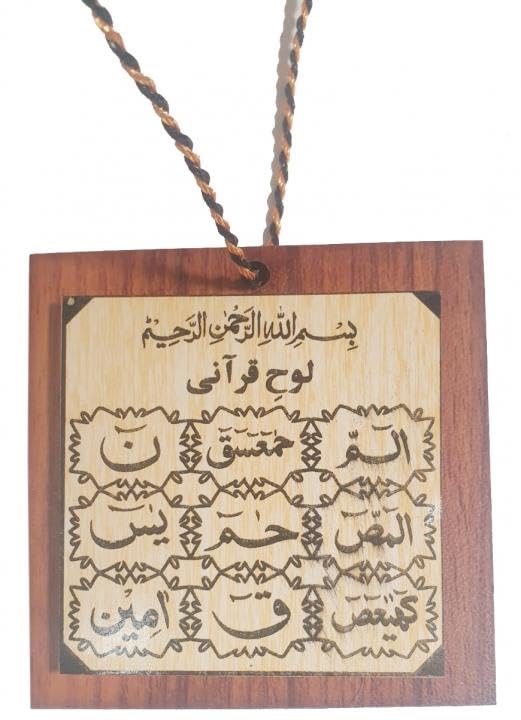 بِسْمِ اللّٰهِ الرَّحْمٰنِ الرَّحِيْمِ
لوحِ قرآنی
الٓمّٓ حٰمٓعٓسٓقٓ نٓ
الٓمّٓصٓ حٰمٓ یٰسٓ
كٓهٰيٰعٓصٓ قٓ اٰمِيْن